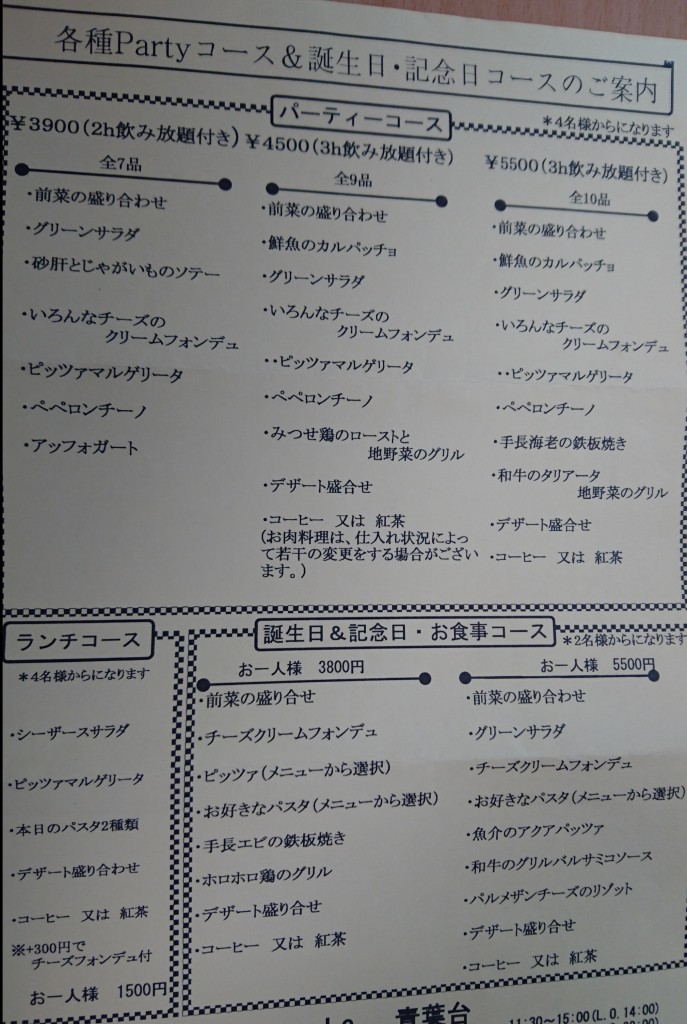 各種Partyコース＆誕生日・記念日コースのご案内
パーティーコース
＊4名様からになります
￥3900(2h飲み放題付き)
全7品
・前菜の盛り合わせ
・グリーンサラダ
・砂肝とじゃがいものソテー
・いろんなチーズの
クリームフォンデュ
・ピッツァマルゲリータ
・ペペロンチーノ
・アッフォガート
￥4500(3h飲み放題付き)
全9品
・前菜の盛り合わせ
・鮮魚のカルパッチョ
・グリーンサラダ
・いろんなチーズの
クリームフォンデュ
・・ピッツァマルゲリータ
・ペペロンチーノ
・みつせ鶏のローストと
地野菜のグリル
・デザート盛合せ
・コーヒー 又は 紅茶
(お肉料理は、仕入れ状況によっ
て若干の変更をする場合がござい
ます。)
￥5500(3h飲み放題付き)
全10品
・前菜の盛り合わせ
・鮮魚のカルパッチョ
・グリーンサラダ
・いろんなチーズの
クリームフォンデュ
・・ピッツァマルゲリータ
・ペペロンチーノ
・手長海老の鉄板焼き
・和牛のタリアータ
地野菜のグリル
・デザート盛合せ
・コーヒー 又は 紅茶
ランチコース
＊4名様からになります
・シーザースサラダ
・ピッツァマルゲリータ
・本日のパスタ2種類
・デザート盛り合わせ
・コーヒー 又は 紅茶
※+300円で
チーズフォンデュ付
お一人様 1500円
誕生日＆記念日・お食事コース
＊2名様からになります
お一人様 3800円
・前菜の盛り合せ
・チーズクリームフォンデュ
・ピッツァ(メニューから選択)
・お好きなパスタ(メニューから選択)
・手長エビの鉄板焼き
・ホロホロ鶏のグリル
・デザート盛り合せ
・コーヒー 又は 紅茶
お一人様 5500円
・前菜の盛り合わせ
・グリーンサラダ
・チーズクリームフォンデュ
・お好きなパスタ(メニューから選択)
・魚介のアクアパッツァ
・和牛のグリルバルサミコソース
・パルメザンチーズのリゾット
・デザート盛り合せ
・コーヒー 又は 紅茶
青葉台
11:30～15:00(L.O.14:00)